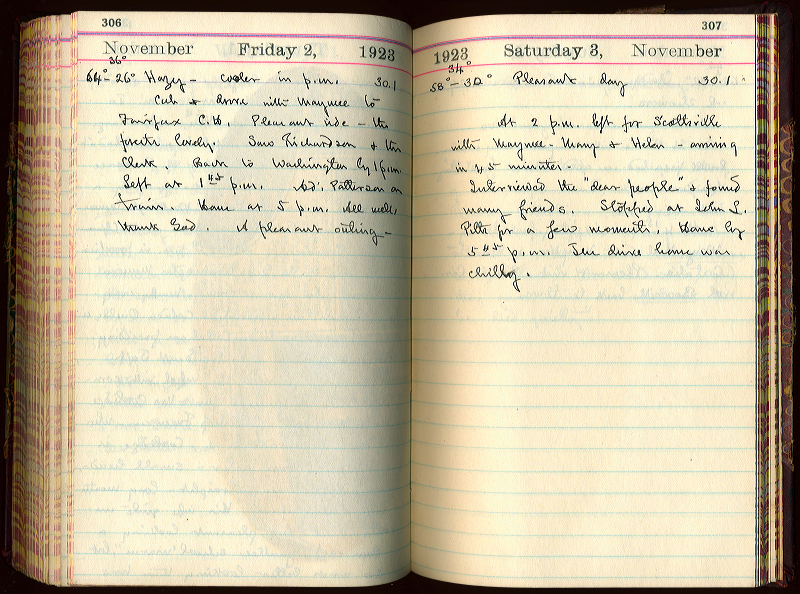 306
November Friday 2, 1923
36°
64°-26° Hazy - cooler in p.m. 30.1
Cab & drive with Maymee to
Fairfax C.H. Pleasant ride - the
forests lovely. Saw Richardson & the
Clerk. Back to Washington by 1 p.m.
Left at 1 45 p.m. Patterson on
train. Home at 5 p.m. All well,
thank God. A pleasant outing -
307
1923 Saturday 3, November
34°
58°-32° Pleasant day 30.1
At 2 p.m. left for Scottsville
with Maymee - Mary & Helen - arriving
in 45 minutes.
Interviewed the "dear people" & found
many friends. Stopped at John L.
Pitts for a few moments. Home by
5 45 p.m. The drive home was
chilly.